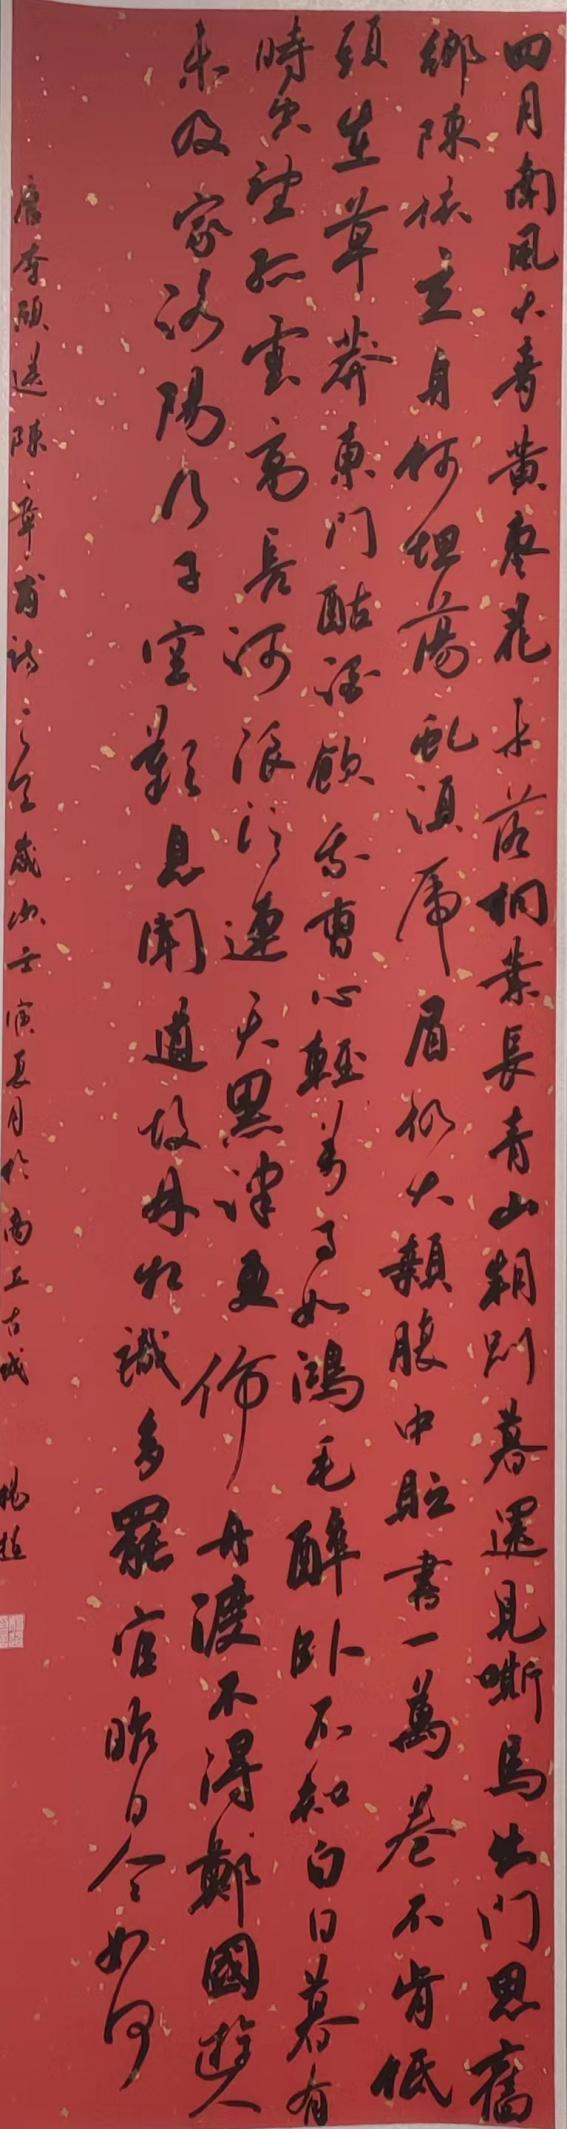 四月南風大麥黃棗花未落桐葉長青山朝別暮還見嘶馬出門思舊
鄉陳侯立身何坦蕩虬須虎眉仍大顙腹中貯書一萬卷不肯低
頭在草莽東門酤酒飲我曹心輕萬事如鴻毛醉臥不知白日暮有
時空望孤雲高長河浪頭連天黑津吏停舟渡不得鄭國遊人
未及家洛陽行子空歎息聞道故林相識多罷官昨日今如何
唐李頎送陳章甫詩歲次壬寅夏月於商丘古城 楊